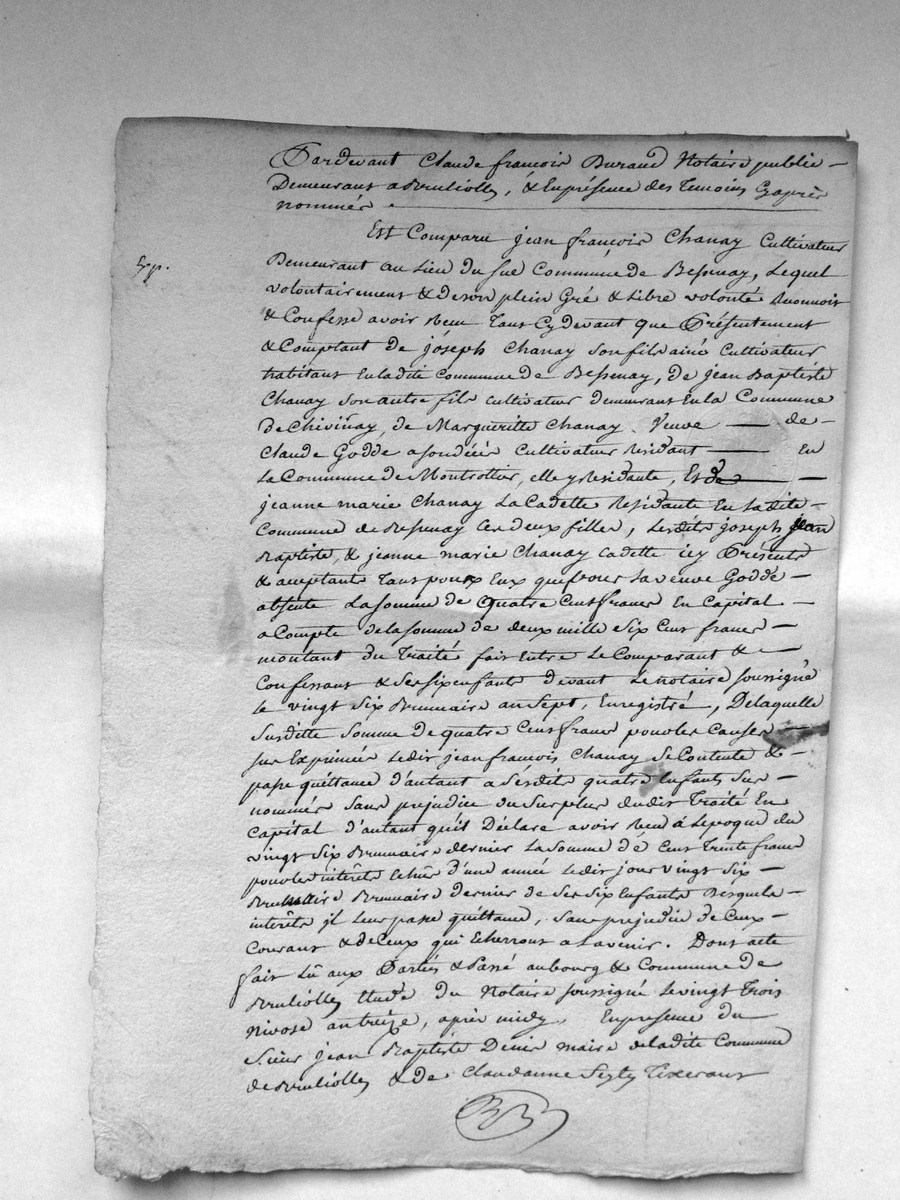 Pardevant Claude françois Durand Notaire public
Demeurant a Bruliolles, & En présence des Temoins Cy après
nommés .
Est Comparu jean françois Chanay Cultivateur
Exp.
Demeurant au Lieu du sué Commune de Bessenay, Lequel
volontairement & de son plein Gré & Libre volonté Reconnoit
& Confesse avoir Reçu Tant Cy devant que Présentement
& Comptant de joseph Chanay son fils ainé Cultivateur
habitant En ladite Commune de Bessenay, de jean Baptiste
Chanay son autre fils cultivateur demeurant En la Commune
de Chivinay, de Margueritte Chanay Veuve de
Claude Godde a son décès Cultivateur Résidant En
la Commune de Montrottier, elle y residante, Et de
jeanne marie Chanay La Cadette Residante En ladite
Commune de Bessenay Ces deux filles, Lesdits joseph, jean
Baptiste, & jeanne marie Chanay Cadette icy Présents
& acceptants Tant pour Eux que pour la veuve Goddé
absente La somme de Quatre Cent francs En Capital
a Compte de la somme de deux mille Six Cent francs
montant du Traité fait Entre Le Comparant &
Confessant & Ses six enfants devant Le notaire soussigné
Le vingt Six Brumaire an Sept, Enregistré, De laquelle
Susditte Somme de quatre Cent francs pour les Causes
sus Exprimées Ledit jean françois Chanay Se Contente &
passe quittance d'autant a Sesdits quatre Enfants Sus
nommés Sans prejudice du Surplus dudit Traité En
Capital d'autant qu'il Déclare avoir Reçu a L'epoque du
vingt Six Brumaire dernier La Somme de Cent Trente francs
pour les intérêts Echus d'une année Ledit jour vingt Six
Brumaire dernier de Ses Six Enfants Desquels
intérêts il Leur passe quittance, Sans prejudice de Ceux
Courant & de Ceux qui Echerront a L'avenir. Dont acte
fait Lû aux Parties & Passé au bourg & Commune de
Bruliolles Etude du Notaire soussigné Le vingt Trois
Nivose an treize, après midy, En presence du
Sieur jean Baptiste Denis maire de ladite Commune
de Brulliolles & de Claudanne